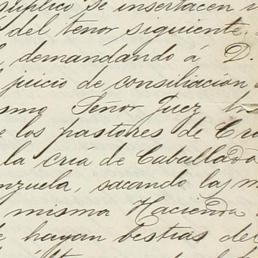 suplico se insertasen
del tenor siguiente.
demandando á D.
juicio de consiliación
smo Señor Juez
e los pastores de Cru
la cría de Caballada
nzuela, sacando las m
misma Hacienda
e hayan bestias del